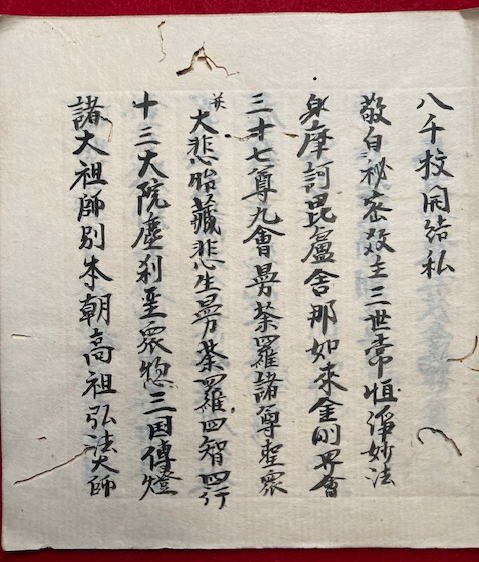 八千枚開結私
敬白秘密教主三世常恒浄妙法
身摩訶毘盧舎那如来金剛界會
三十七尊九會曼荼羅諸尊聖衆
并大悲胎蔵悲生曼荼羅四智四行
十三大院塵刹聖衆惣三国傳燈
諸大祖師別本朝高祖弘法大師